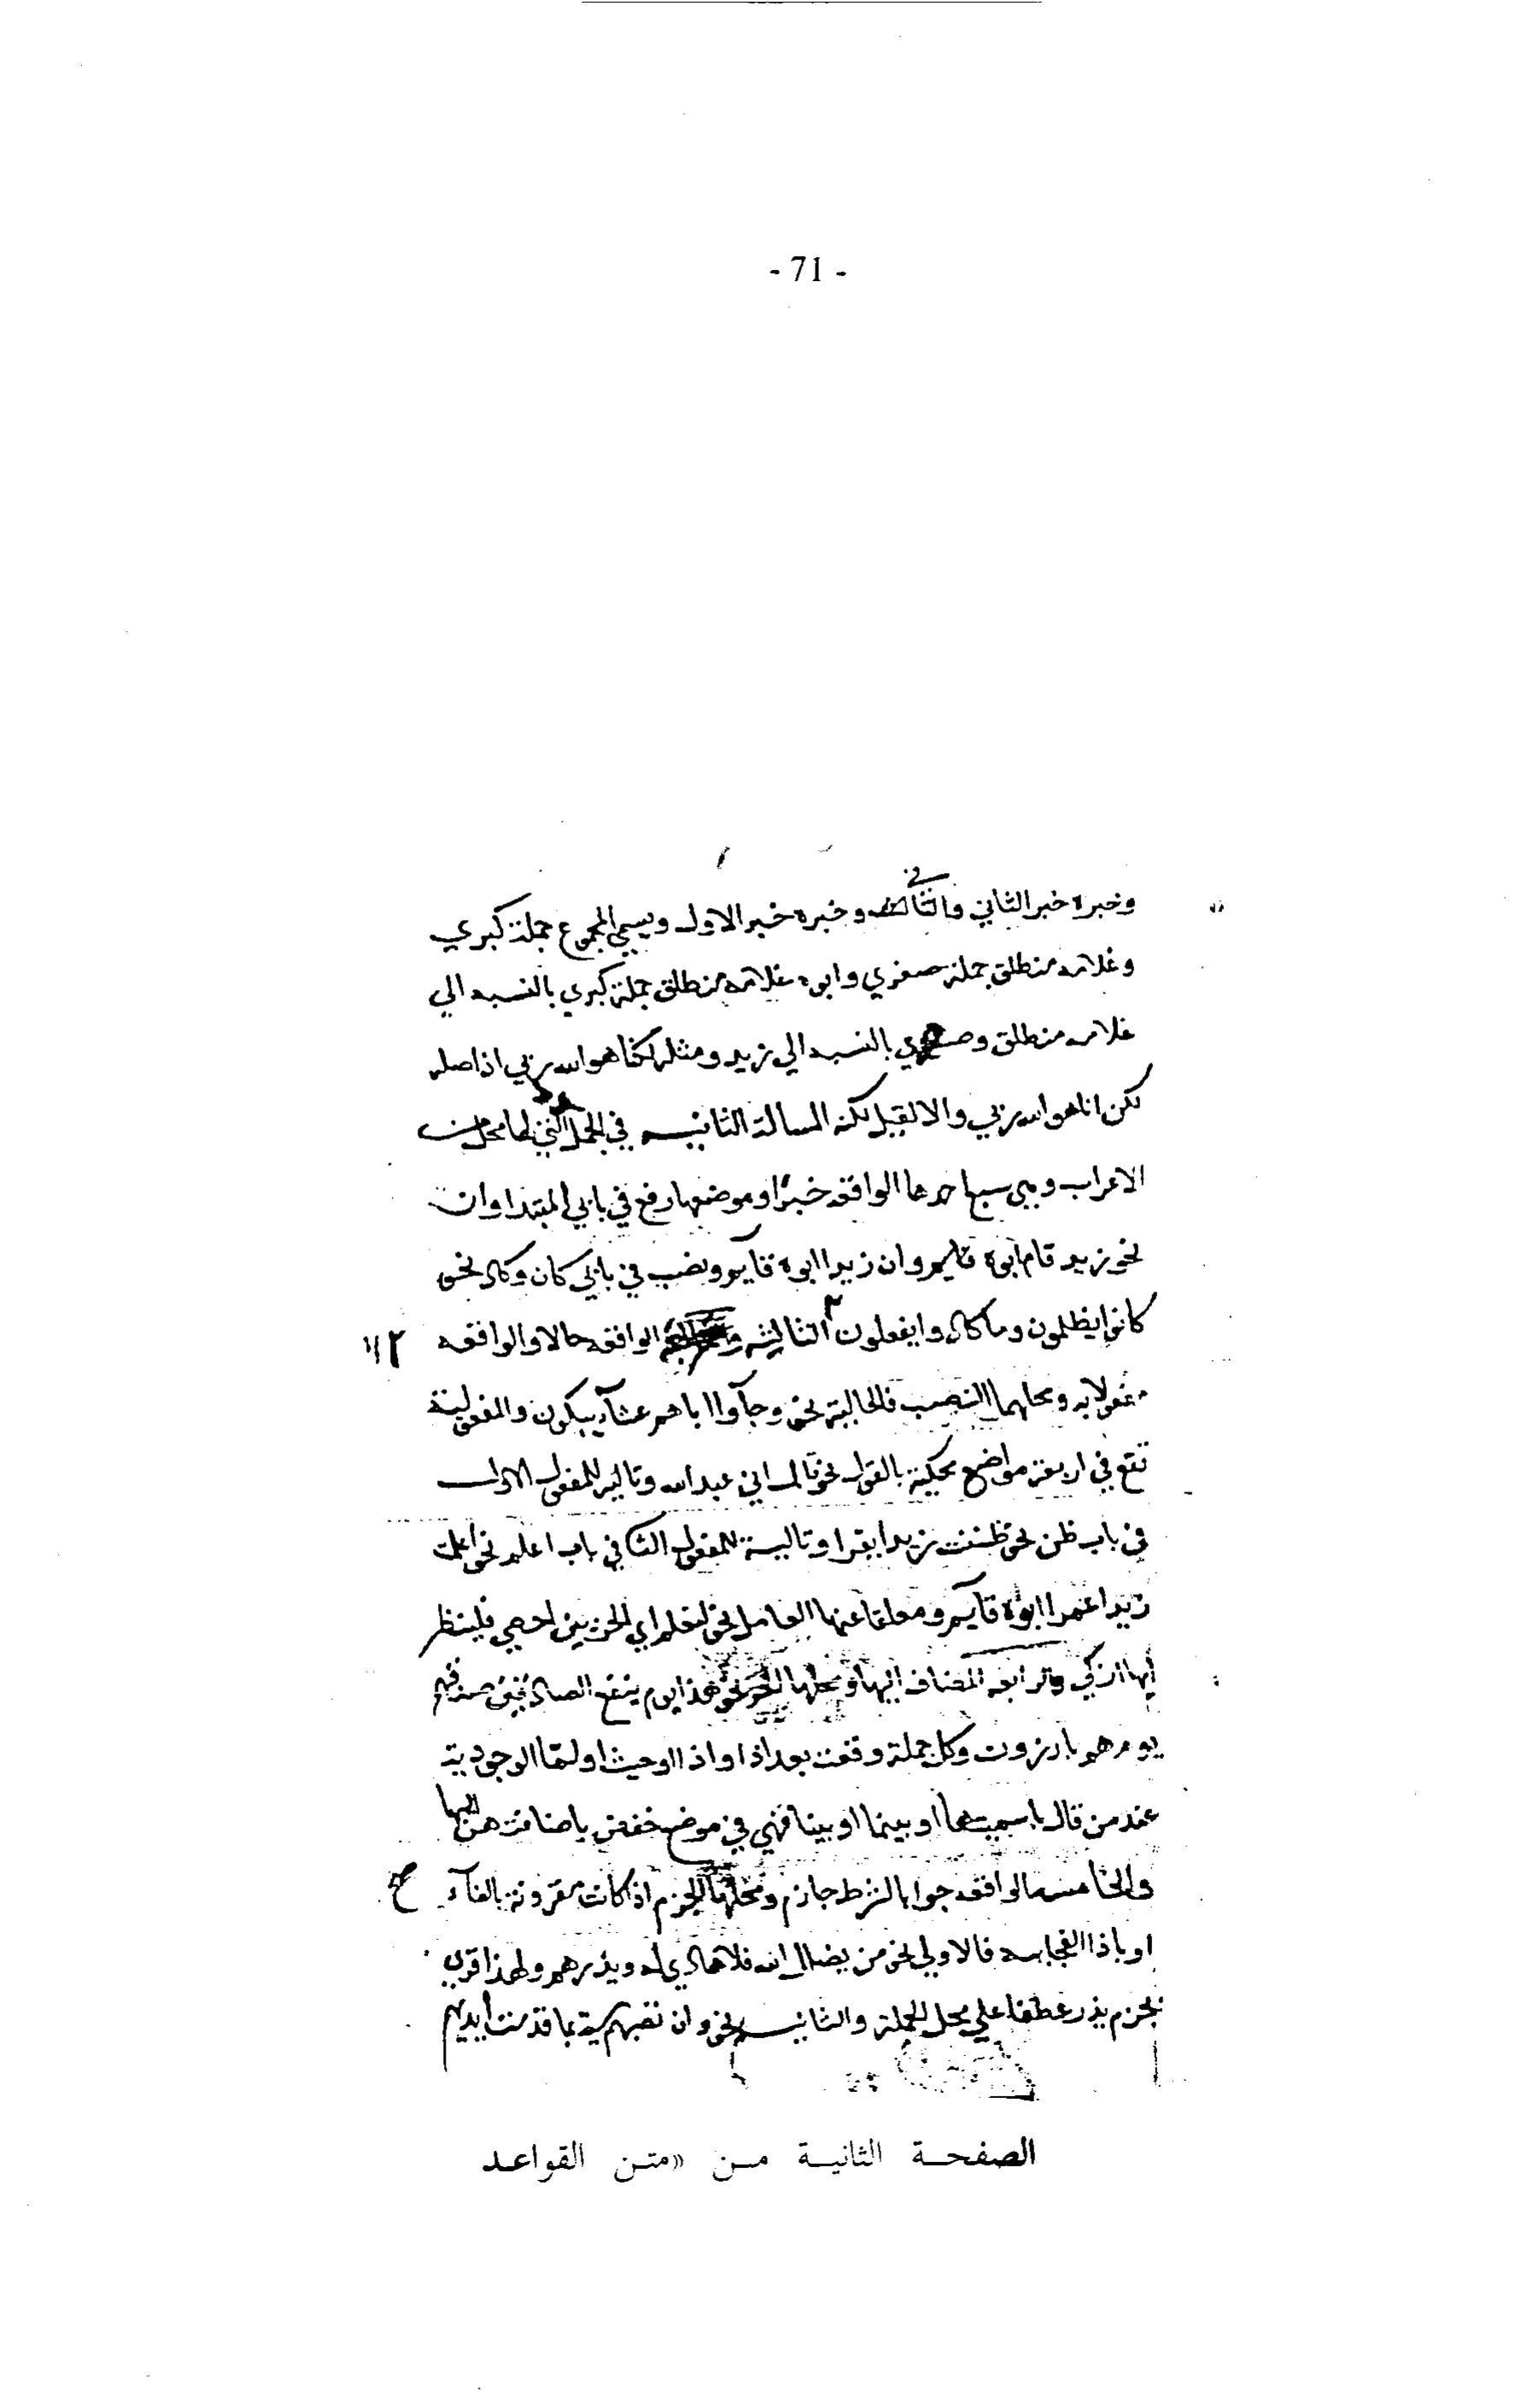 - 71 -
وخبره خبر الثاني والثاني وخبره خبر الاول ويسمي المجموع جملة كبري
وغلامه منطلق جملة صغري وابوه غلامه منطلق جملة كبري بالنسبة الي
غلامه منطلق وصغري بالنسبة الي زيد ومثله لكنا هو الله ربي اذ اصله
لكن انا هو الله ربي والا لقيل لكنه المسالة الثانية في الجمل التي لها محل من
الاعراب وهي سبع احدها الواقعة خبرا وموضعها رفع في بابي المبتدا وان
نحو زيد قام ابوه قايم وان زيدا ابوه قايم ونصب في بابي كان وكاد نحو
كانوا يظلمون وما كادوا يفعلون الثانية والثالثة الواقعة حالا والواقعة
مفعولا به ومحلهما النصب فالحالية نحو وجآوا اباهم عشآء يبكون والمفعولية
تقع في اربعة مواضع محكية بالقول نحو قال اني عبد الله وتالية للمفعول الاول
في باب ظن نحو ظننت زيدا يقرا وتالية للمفعول الثاني في باب اعلم نحو اعلمت
زيدا عمرا ابوه قايم ومعلقا عنها العامل نحو لنعلم اي الحزبين احصي فلينظر
ايها ازكي والرابعة المضاف اليها ومحلها الجر نحو هذا يوم ينفع الصادقين صدقهم
يوم هم بارزون وكل جملة وقعت بعد اذا او اذ او حيث او لمّا الوجودية
عند من قال باسميتها او بينما او بينا فهي في موضع خفض باضافتهن اليها
والخامسة الواقعة جوابا لشرط جازم ومحلها الجزم اذا كانت مقرونة بالفآء
او باذا الفجايية فالاولي نحو من يضلل الله فلا هادي له ويذرهم ولهذا قري
بجزم يذر عطفا علي محل الجملة والثانية نحو وان تصبهم سية بما قدمت ايديهم
الصفحـة الثانيـة مـن «متـن القواعـد